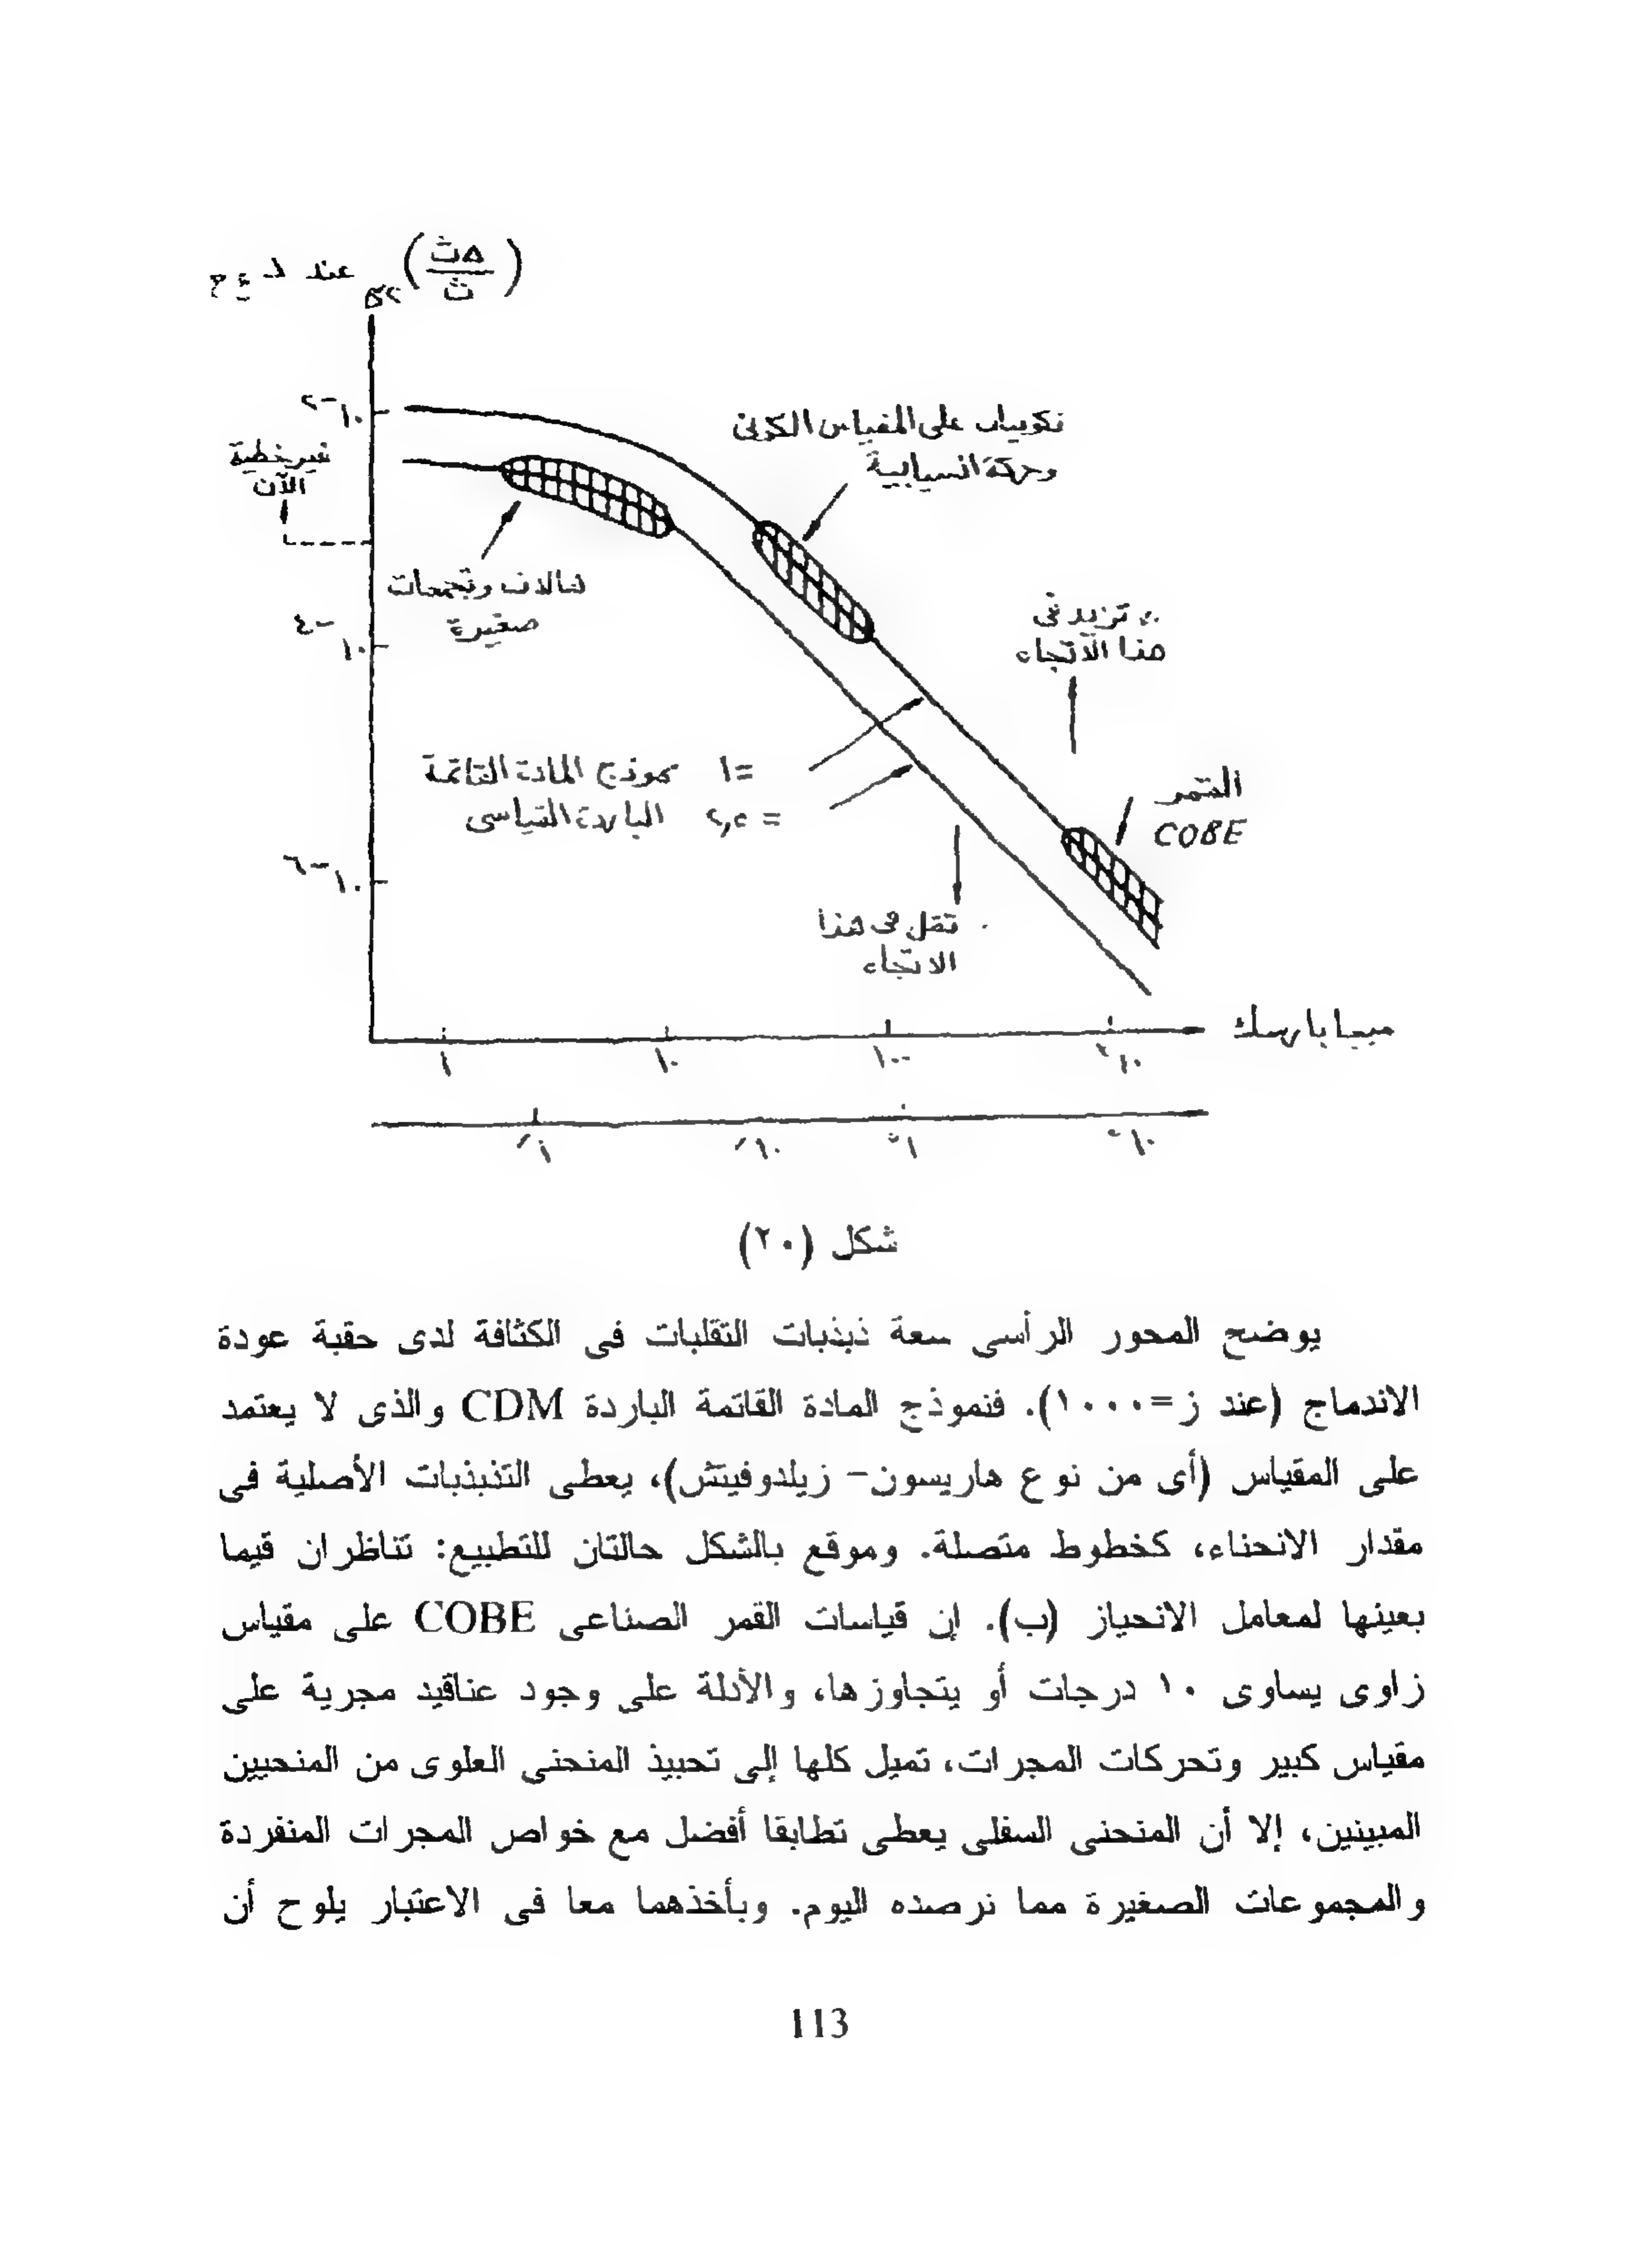 (Δث / ث) عند
١٠-٢
غير خطية
الآن
تكوينات على المقياس الكونى
وحركة انسيابية
هالات وتجمعات
صغيرة
١٠-٤
تزيد فى
هذا الاتجاه
= ١ نموذج المادة القاتمة
= ٢,٥ الباردة القياسى
القمر
COBE
١٠-٦
تقل فى هذا
الاتجاه
ميجا بارسك
١ ١٠ ١٠٠ ١٠٣
١ ١٠ ١ ١٠
شكل (٢٠)
يوضح المحور الرأسى سعة ذبذبات التقلبات فى الكثافة لدى حقبة عودة
الاندماج (عند ز=١٠٠٠). فنموذج المادة القاتمة الباردة CDM والذى لا يعتمد
على المقياس (أى من نوع هاريسون- زيلدوفيتش)، يعطى التذبذبات الأصلية فى
مقدار الانحناء، كخطوط متصلة. وموقع بالشكل حالتان للتطبيع: تتاظران قيما
بعينها لمعامل الانحياز (ب). إن قياسات القمر الصناعى COBE على مقياس
زاوى يساوى ١٠ درجات أو يتجاوزها، والأدلة على وجود عناقيد مجرية على
مقياس كبير وتحركات المجرات، تميل كلها إلى تحبيذ المنحنى العلوى من المنحيين
المبينين، إلا أن المنحنى السفلى يعطى تطابقا أفضل مع خواص المجرات المنفردة
والمجموعات الصغيرة مما نرصده اليوم. وبأخذهما معا فى الاعتبار يلوح أن
113